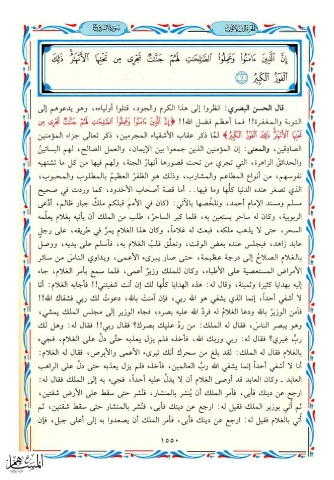 سورة البروج
إِنَّ الَّذِينَ ءَامَنُوا وَعَمِلُوا الصَّالِحَاتِ لَهُمْ جَنَّاتٌ تَجْرِي مِن تَحْتِهَا الْأَنْهَارُ ذَٰلِكَ
الْفَوْزُ الْكَبِيرُ
قال الحسن البصري: انظروا إلى هذا الكرم والجود، قتلوا أولياءه، وهو يدعوهم إلى
التوبة والمغفرة!! فما أعظم فضل الله!! ﴿إِنَّ الَّذِينَ ءَامَنُوا وَعَمِلُوا الصَّالِحَاتِ لَهُمْ جَنَّاتٌ تَجْرِي مِن
تَحْتِهَا الْأَنْهَارُ ذَٰلِكَ الْفَوْزُ الْكَبِيرُ﴾ لمَّا ذكر عقاب الأشقياء المجرمين، ذكر تعالى جزاء المؤمنين
الصادقين، والمعنى: إن المؤمنين الذين جمعوا بين الإيمان، والعمل الصالح، لهم البساتينُ
والحدائقُ الزاهرة، التي تجري من تحت قصورها أنهارُ الجنة، ولهم فيها من كل ما تشتهيه
نفوسهم، من أنواع المطاعم والمشارب، وذلك هو الظفر العظيمُ بالمطلوب والمحبوب،
الذي تصغر عنده الدنيا كلُّها وما فيها.. أما قصة أصحاب الأخدود، كما وردت في صحيح
مسلم ومسند الإمام أحمد، ونلخصها بالآتي: (كان في الأمم قبلكم ملكٌ جبار ظالم، ادَّعى
الربوبية، وكان له ساحر يستعين به، فلما كبر الساحرُ، طلب من الملك أن يأتيه بغلام يعلِّمه
السحر، حتى لا يذهب ملكه، فبعث له غلاماً، وكان هذا الغلام يمرُّ في طريقه، على رجلٍ
عابد زاهد، فيجلس عنده بعض الوقت، وتعلَّق قلبُ الغلام به، فأسلم على يديه، ووصل
بالغلام الصلاحُ إلى درجة عظيمة، حتى صار يبرىء الأعمى، ويداوي الناسَ من سائر
الأمراض المستعصية على الأطباء، وكان للملك وزيرٌ أعمى، فلما سمع بأمر الغلام، جاء
إليه بهدايا كثيرة وثمينة، وقال له: هذه الهدايا كلُّها لك إن أنت شفيتني!! فأجابه الغلام: أنا
لا أشفي أحداً، إنما الذي يشفي هو الله ربي، فإن آمنتَ بالله، دعوتُ لك ربي فشفاك الله!!
فآمن الوزيرُ بالله ودعا الغلامُ له فردَّ الله عليه بصره، فجاء الوزير إلى مجلس الملك يمشي،
وهو يبصر الناسَ، فقال له الملك: من ردَّ عليك بصرك؟ فقال ربي!! فقال له: وهل لك
ربٌّ غيري؟ فقال له: ربي وربك الله، فأخذه فلم يزل يعذبه حتَّى دلَّ على الغلام، فجيء
بالغلام فقال له الملك: لقد بلغ من سحرك أنك تبرىء الأعمى والأبرص، فقال له الغلام:
أنا لا أشفي أحداً إنما يشفي الله ربُّ العالمين، فأخذه فلم يزل يعذبه حتى دلَّ على الراهب
العابد ـ وكان العابد قد أوصى الغلام أن لا يدلَّ عليه أحداً، فجيء به إلى الملك فقال له:
ارجع عن دينك فأبى، فأمر الملك أن يُنشر بالمنشار، فنُشر حتى سقط على الأرض شقتين،
ثم أُتي بوزير الملك فقيل له: ارجع عن دينك فأبى، فنُشر بالمنشار حتى سقط شقتين، ثم
أُتي بالغلام فقيل له: ارجع عن دينك فأبى، فأمر الملك أن يصعدوا به إلى أعلى جبل، فإن
١٥٥٠